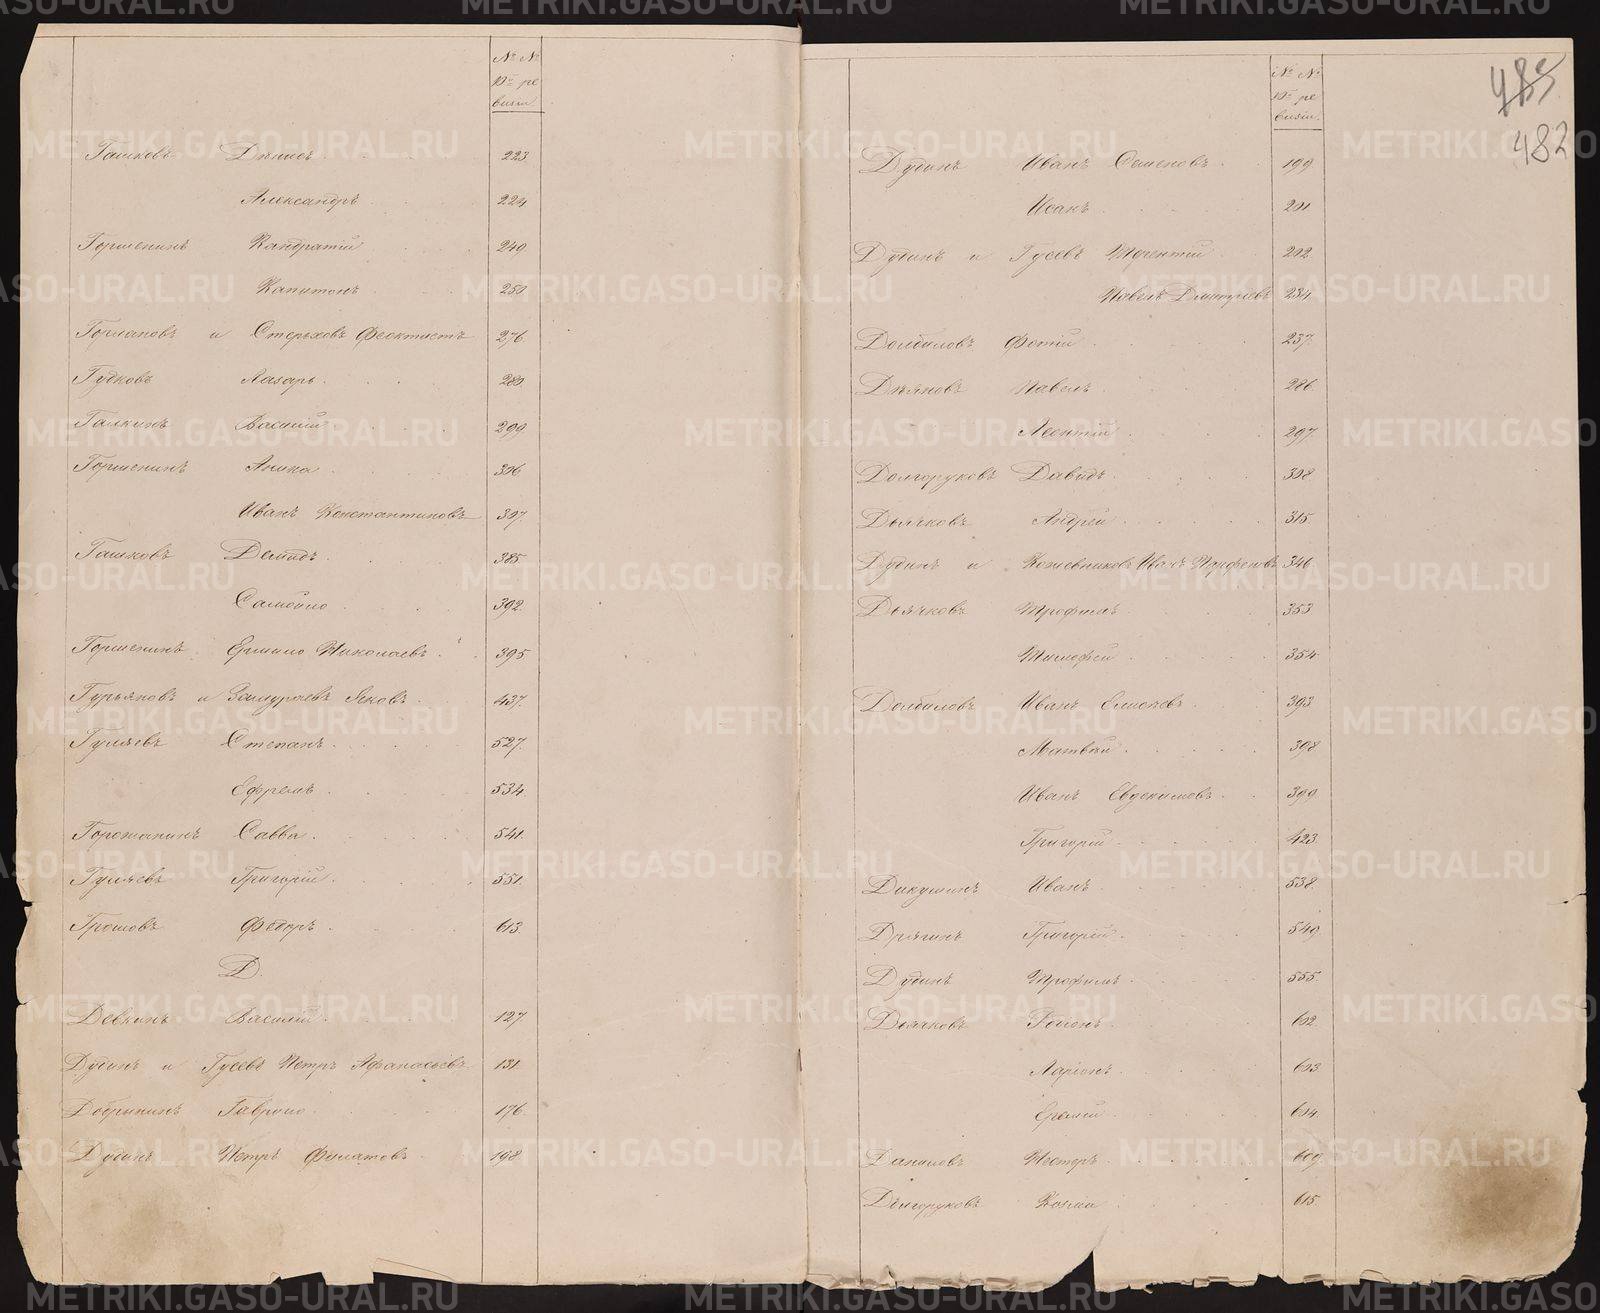 № №
10й ре
визіи.
Гашковъ Денисъ 223
Александръ 224
Горшенинъ Кандратій 240
Капитонъ 250
Гормановъ и Стерховъ Феоктистъ 276
Гудковъ Лазарь 280
Галкинъ Василій 299
Горшенинъ Аника 306
Иванъ Константиновъ 307
Гашковъ Демидъ 385
Самойло 392
Горшенинъ Ермило Николаевъ 395
Гурьяновъ и Замураевъ Яковъ 437
Гуляевъ Степанъ 527
Ефремъ 534
Горожанинъ Савва 541
Гуляевъ Григорій 551
Громовъ Федоръ 613
Д.
Девкинъ Василій 127
Дудинъ и Гусевъ Петръ Афанасьевъ 131
Добрынинъ Гаврило 176
Дудинъ Петръ Филатовъ 198
483
482
№ №
10й ре
визіи.
Дудинъ Иванъ Семеновъ 199
Исакъ 201
Дудинъ и Гусевъ 202
Павелъ Дмитріевъ 234
Долбиловъ Фотій 237
Деяновъ Павелъ 286
Леонтій 297
Долгоруковъ Давидъ 308
Дьячковъ Андрей 315
Дудинъ и Кожевниковъ Иванъ Парфеновъ 346
Дьячковъ Трофимъ 353
Тимофей 354
Долбиловъ Иванъ 393
Матвей 398
Иванъ Евдокимовъ 399
Григорій 423
Дикушинъ Иванъ 538
Дрягинъ Григорій 549
Дудинъ Трофимъ 555
Дьяковъ 602
Ларіонъ 603
604
Даниловъ Несторъ 609
Долгоруковъ Козма 615